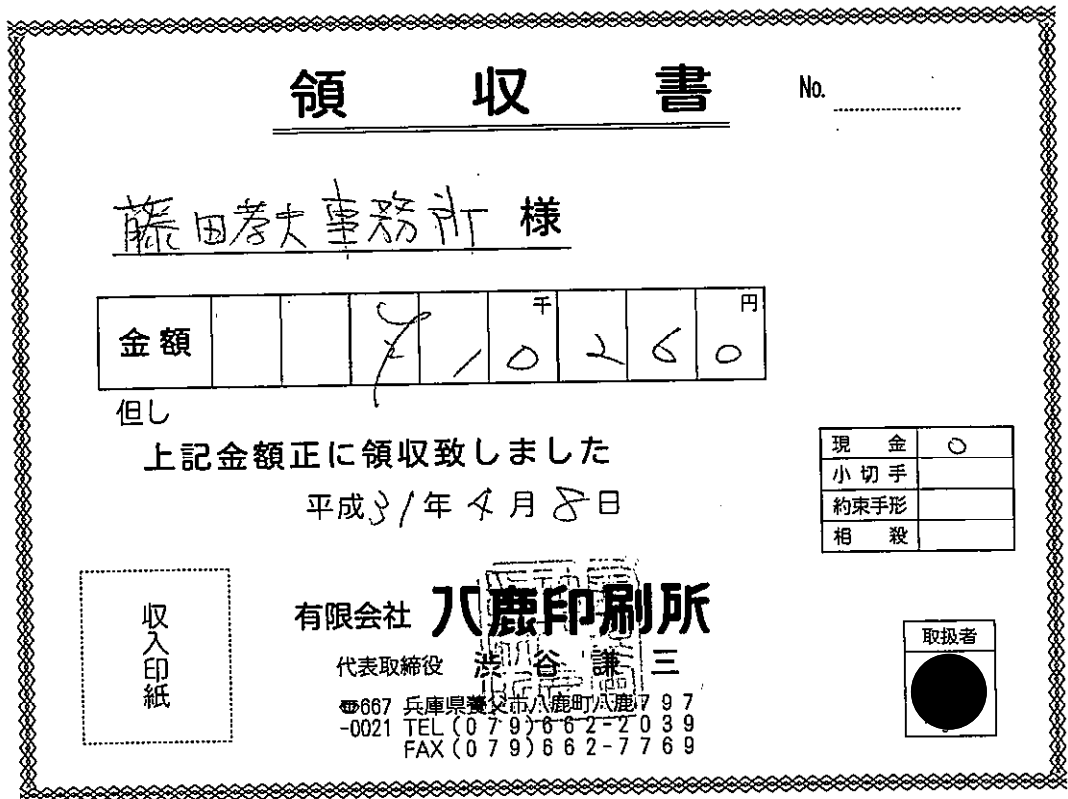 領収書
No.
藤田孝夫事務所 様
金額 ¥10260 千 円
但し
上記金額正に領収致しました
平成31年4月8日
現金 ○
小切手
約束手形
相殺
収入印紙
有限会社 八鹿印刷所
代表取締役 渋谷謙三
☎667-0021 兵庫県養父市八鹿町八鹿797
TEL(079)662-2039
FAX(079)662-7769
取扱者